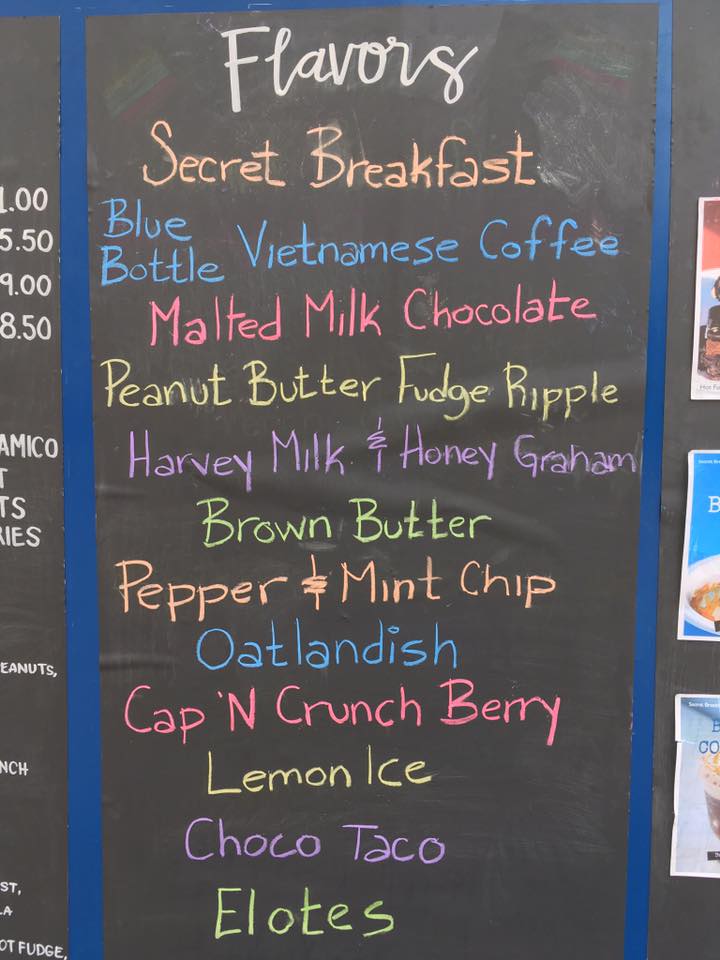 Flavors
Secret Breakfast
Blue
Bottle Vietnamese Coffee
Malted Milk Chocolate
Peanut Butter Fudge Ripple
Harvey Milk & Honey Graham
Brown Butter
Pepper & Mint Chip
Oatlandish
Cap 'N Crunch Berry
Lemon Ice
Choco Taco
Elotes
1.00
5.50
9.00
8.50
AMICO
T
TS
RIES
EANUTS,
NCH
ST,
LA
OT FUDGE,